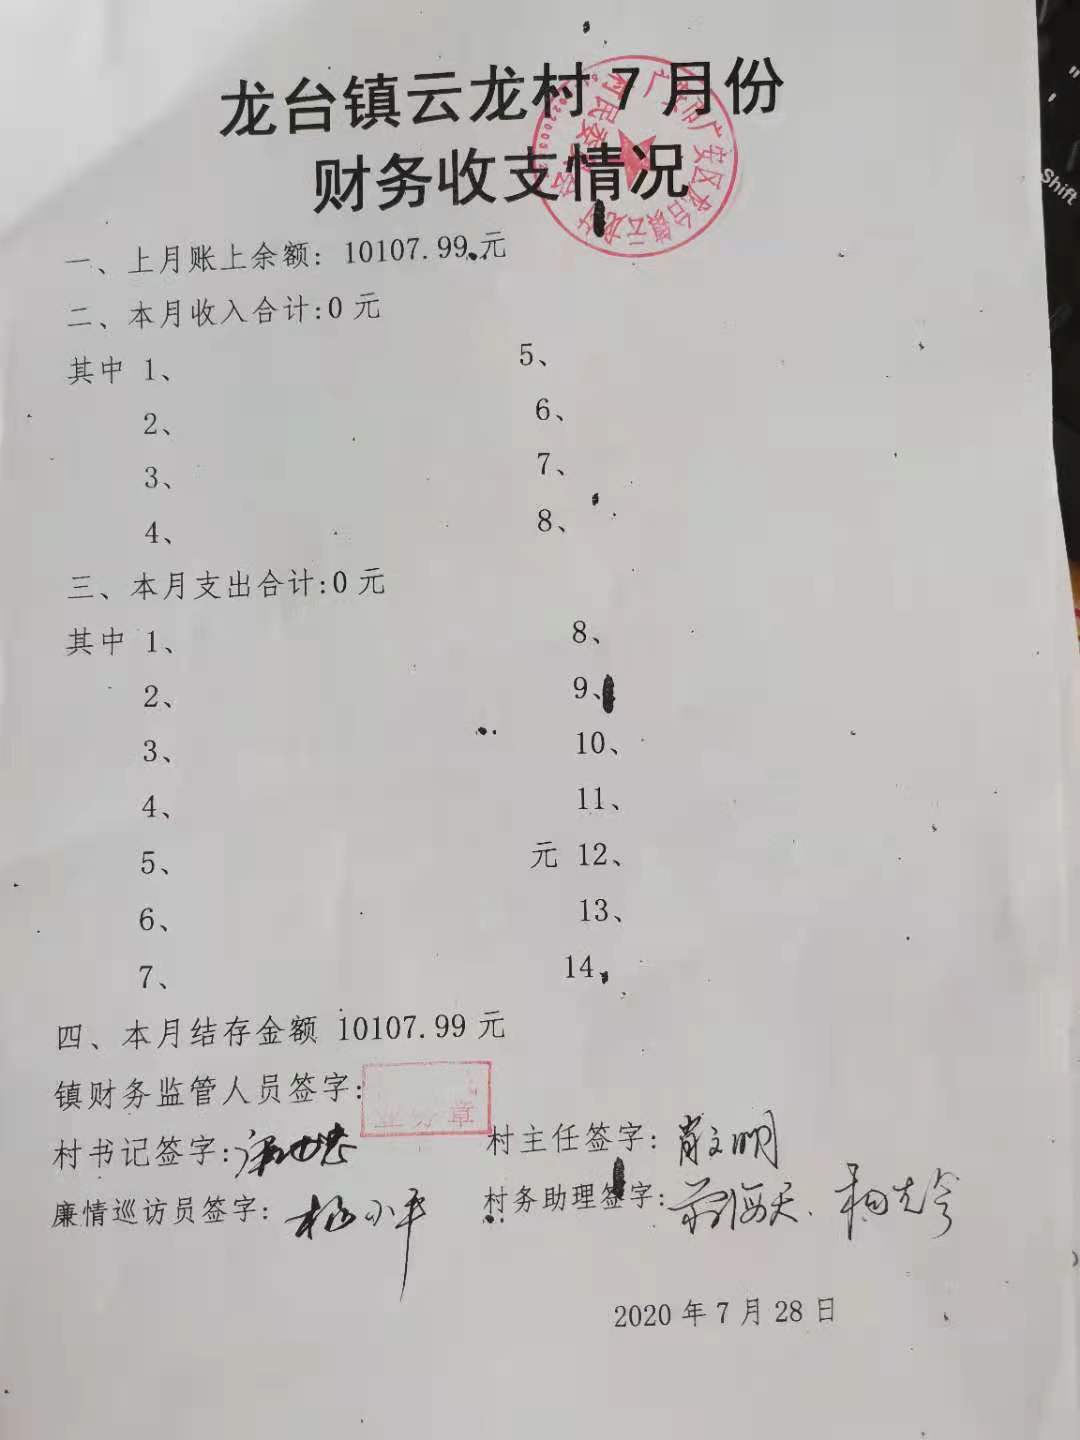 龙台镇云龙村7月份
财务收支情况
广安市广安区龙台镇云龙村村民委员会
一、上月账上余额：10107.99元
二、本月收入合计:0元
其中 1、 5、
2、 6、
3、 7、
4、 8、
三、本月支出合计:0元
其中 1、 8、
2、 9、
3、 10、
4、 11、
5、 元 12、
6、 13、
7、 14、
四、本月结存金额 10107.99 元
镇财务监管人员签字:
村书记签字: 村主任签字: 肖文明
廉情巡访员签字: 杨小平 村务助理签字:
2020年7月28日
Shift